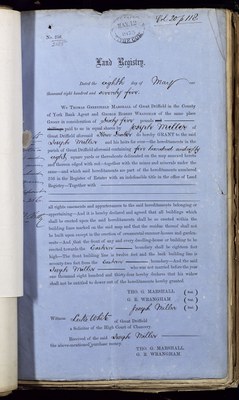 Vol. 20 p 118.
No. 108
Land Registry.
Dated the eighth day of May one
thousand eight hundred and seventy five.
We Thomas Greenwood Marshall of Great Driffield in the County
of York Bank Agent and George Robert Wrangham of the same place
Gent in consideration of Sixty five pounds
paid to us in equal shares by Joseph Miller of
Great Driffield aforesaid do hereby GRANT to the said
Joseph Miller and his heirs for ever the hereditaments in the
parish of Great Driffield aforesaid containing five hundred and fifty
eight square yards or thereabouts delineated on the map annexed hereto
and thereon edged with red together with the mines and minerals under the
same and which said hereditaments are part of the hereditaments numbered
in the Register of Estates with an indefeasible title in the office of Land
Registry Together with
all rights easements and appurtenances to the said hereditaments belonging or
appertaining And it is hereby declared and agreed that all buildings which
shall be erected upon the said hereditaments shall be so erected within the
building lines marked on the said map and that the frontage thereof shall not
be built upon except to the erection of ornamental summer houses and porticos
And that the front of any and every dwelling-house or building to be
erected towards the Eastern boundary shall be eighteen feet
high The front building line is twelve feet and the back building line is
seventy-two feet from the Eastern boundary And the said
Joseph Miller who was not married before the year
one thousand eight hundred and thirty-four hereby declares that his widow
shall not be entitled to dower out of the hereditaments hereby granted
THO. G. MARSHALL
G. R. WRANGHAM
Joseph Miller
Witness Luke White of Great Driffield
a Solicitor of the High Court of Chancery
Received of the said Joseph Miller
the above-mentioned purchase money.
THO. G. MARSHALL
G. R. WRANGHAM.